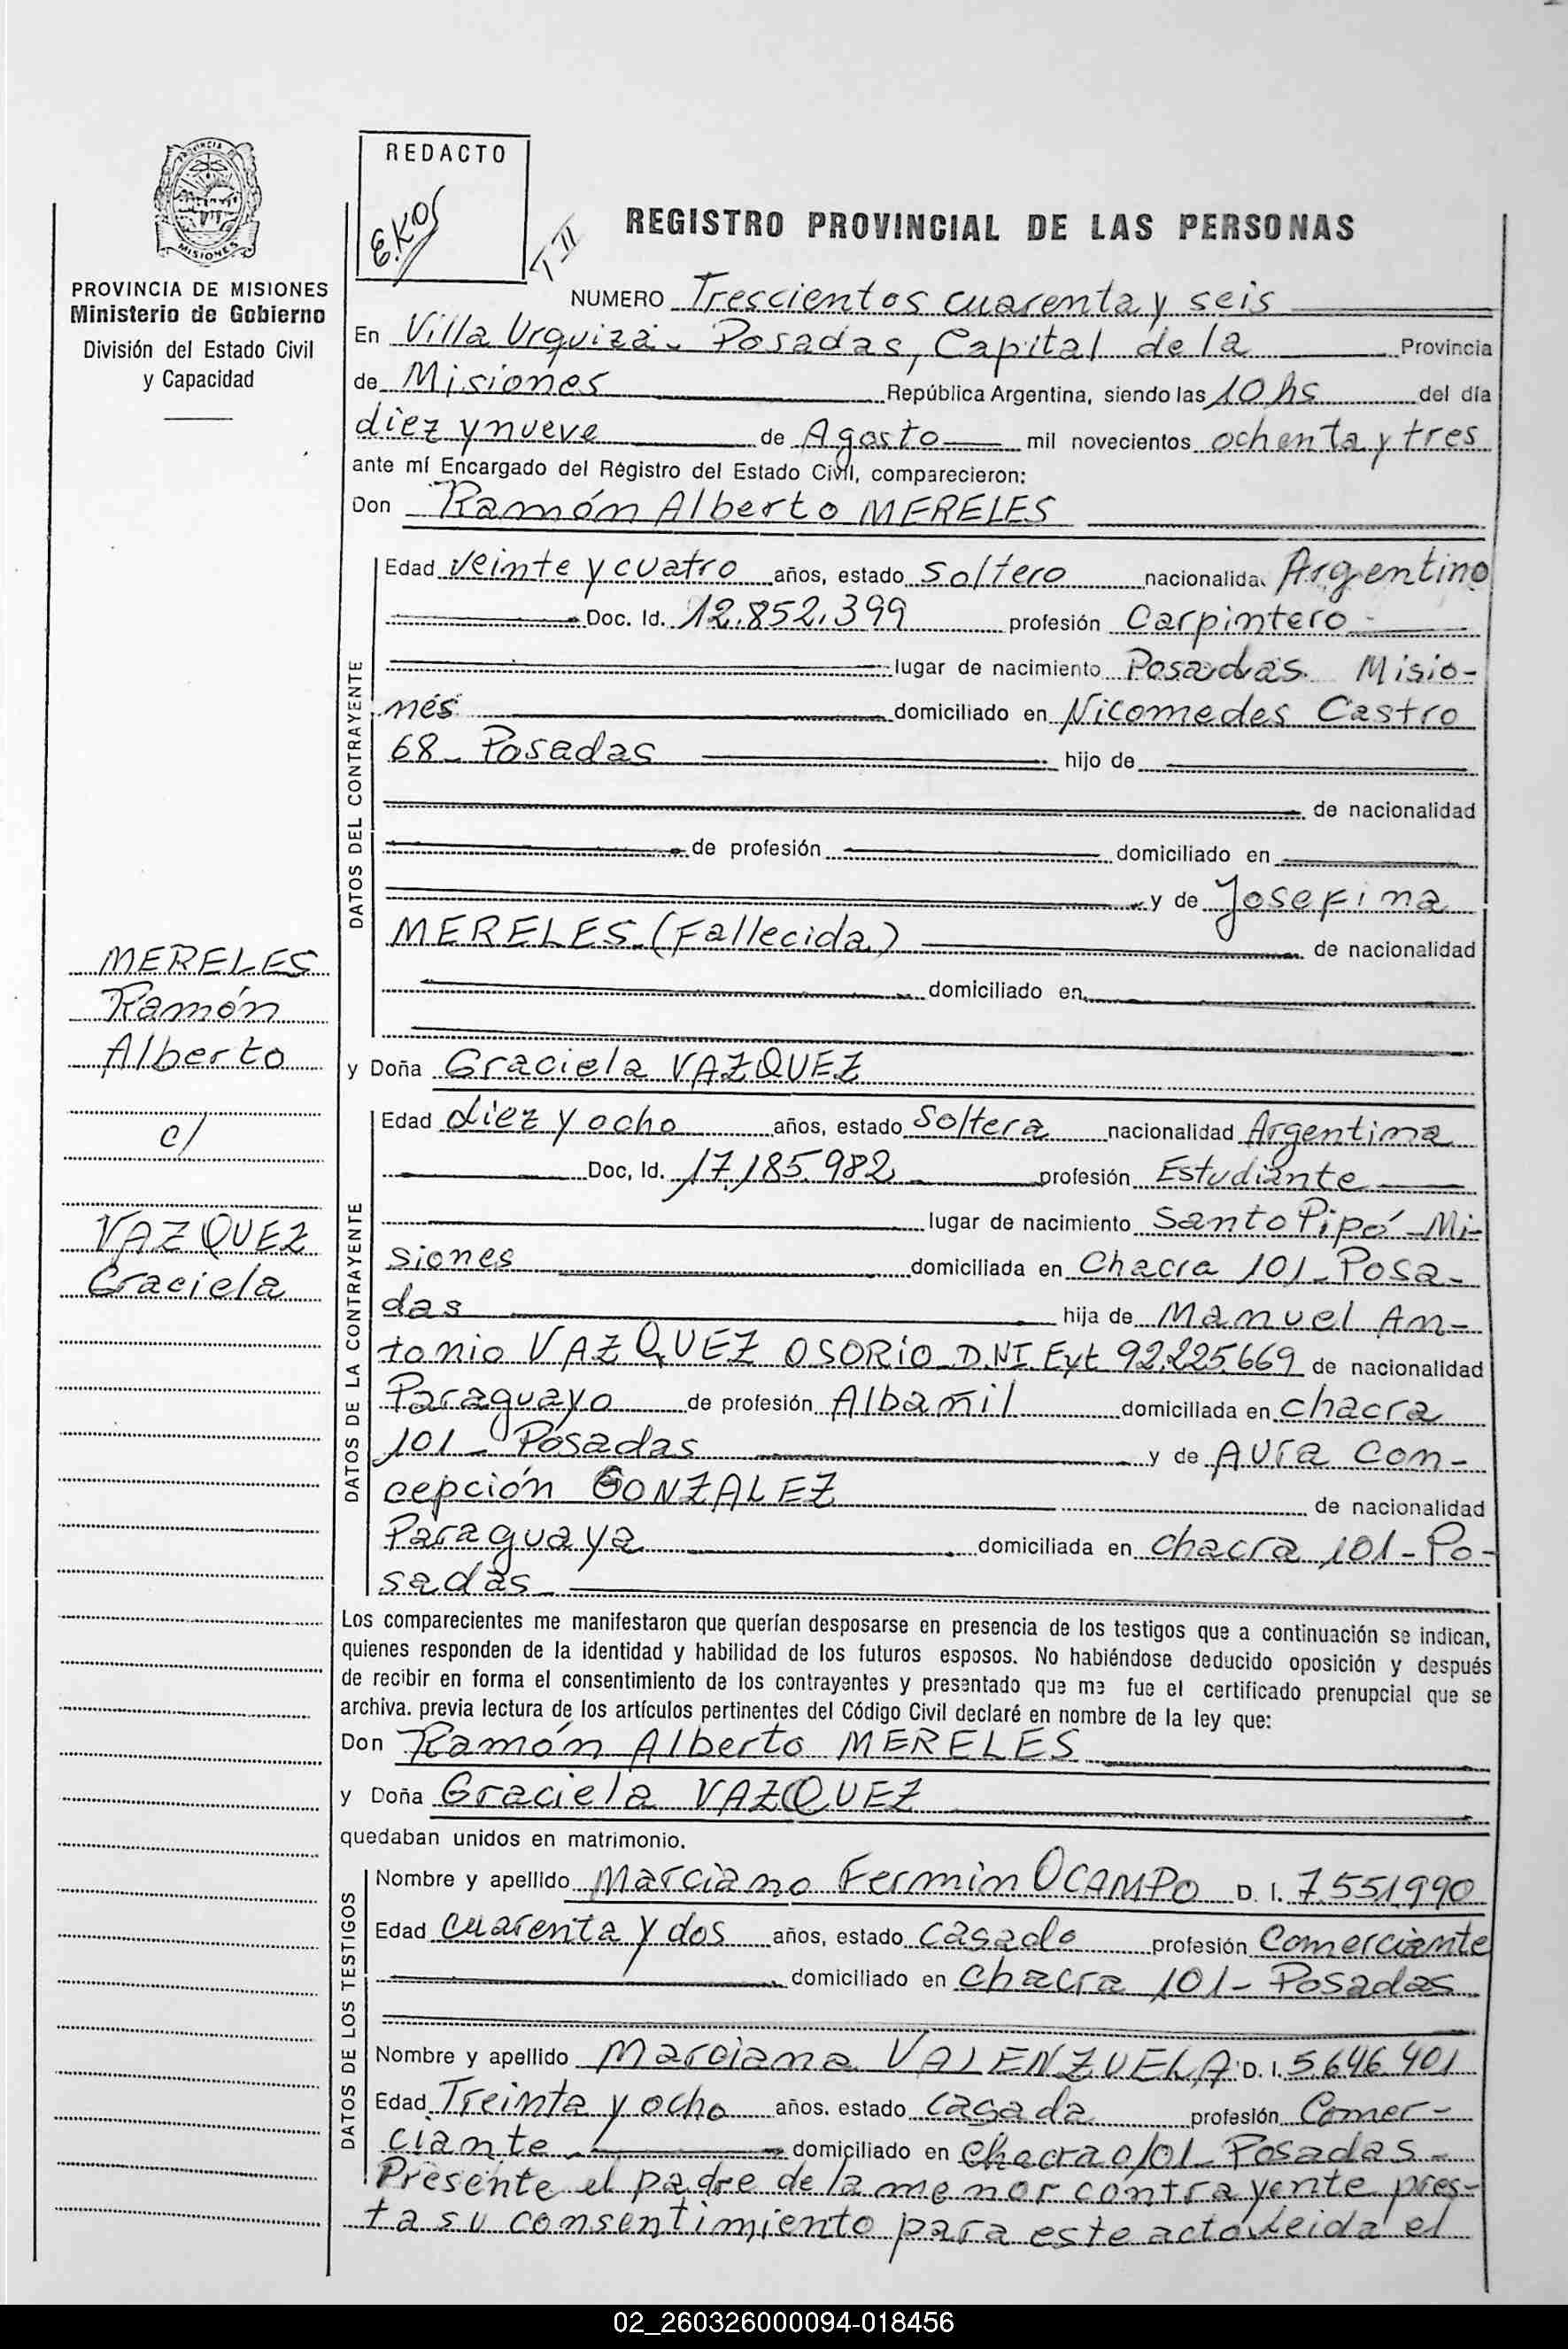 PROVINCIA DE
MISIONES
PROVINCIA DE MISIONES
Ministerio de Gobierno
División del Estado Civil
y Capacidad
REDACTO
T II
REGISTRO PROVINCIAL DE LAS PERSONAS
NUMERO Trescientos cuarenta y seis
En Villa Urquiza - Posadas, Capital de la Provincia
de Misiones República Argentina, siendo las 10 hs del día
diez y nueve de Agosto mil novecientos ochenta y tres
ante mí Encargado del Registro del Estado Civil, comparecieron:
Don Ramón Alberto MERELES
DATOS DEL CONTRAYENTE
Edad veinte y cuatro años, estado Soltero nacionalidad Argentino
Doc. Id. 12.852.399 profesión Carpintero
lugar de nacimiento Posadas Misio-
nes domiciliado en Nicomedes Castro
68 - Posadas hijo de
de nacionalidad
de profesión domiciliado en
y de Josefina
MERELES (Fallecida) de nacionalidad
domiciliado en
MERELES
Ramón
Alberto
c/
VAZQUEZ
Graciela
y Doña Graciela VAZQUEZ
DATOS DE LA CONTRAYENTE
Edad diez y ocho años, estado Soltera nacionalidad Argentina
Doc, Id. 17.185.982 profesión Estudiante
lugar de nacimiento Santo Pipó - Mi-
siones domiciliada en Chacra 101 - Posa-
das hija de Manuel An-
tonio VAZQUEZ OSORIO D.NI. Ext 92.225.669 de nacionalidad
Paraguayo de profesión Albañil domiciliada en chacra
101 - Posadas y de Aura Con-
cepción GONZALEZ de nacionalidad
Paraguaya domiciliada en chacra 101 - Po-
sadas
Los comparecientes me manifestaron que querían desposarse en presencia de los testigos que a continuación se indican,
quienes responden de la identidad y habilidad de los futuros esposos. No habiéndose deducido oposición y después
de recibir en forma el consentimiento de los contrayentes y presentado que me fue el certificado prenupcial que se
archiva. previa lectura de los artículos pertinentes del Código Civil declaré en nombre de la ley que:
Don Ramón Alberto MERELES
y Doña Graciela VAZQUEZ
quedaban unidos en matrimonio.
DATOS DE LOS TESTIGOS
Nombre y apellido Marciano Fermin OCAMPO D. I. 7.551.990
Edad cuarenta y dos años, estado casado profesión Comerciante
domiciliado en Chacra 101 - Posadas
Nombre y apellido Marciana VALENZUELA D. I. 5.646.401
Edad Treinta y ocho años. estado casada profesión Comer-
ciante domiciliado en chacra 101 - Posadas -
Presente el padre de la menor contrayente pres-
ta su consentimiento para este acto. Leida el
02_260326000094-018456